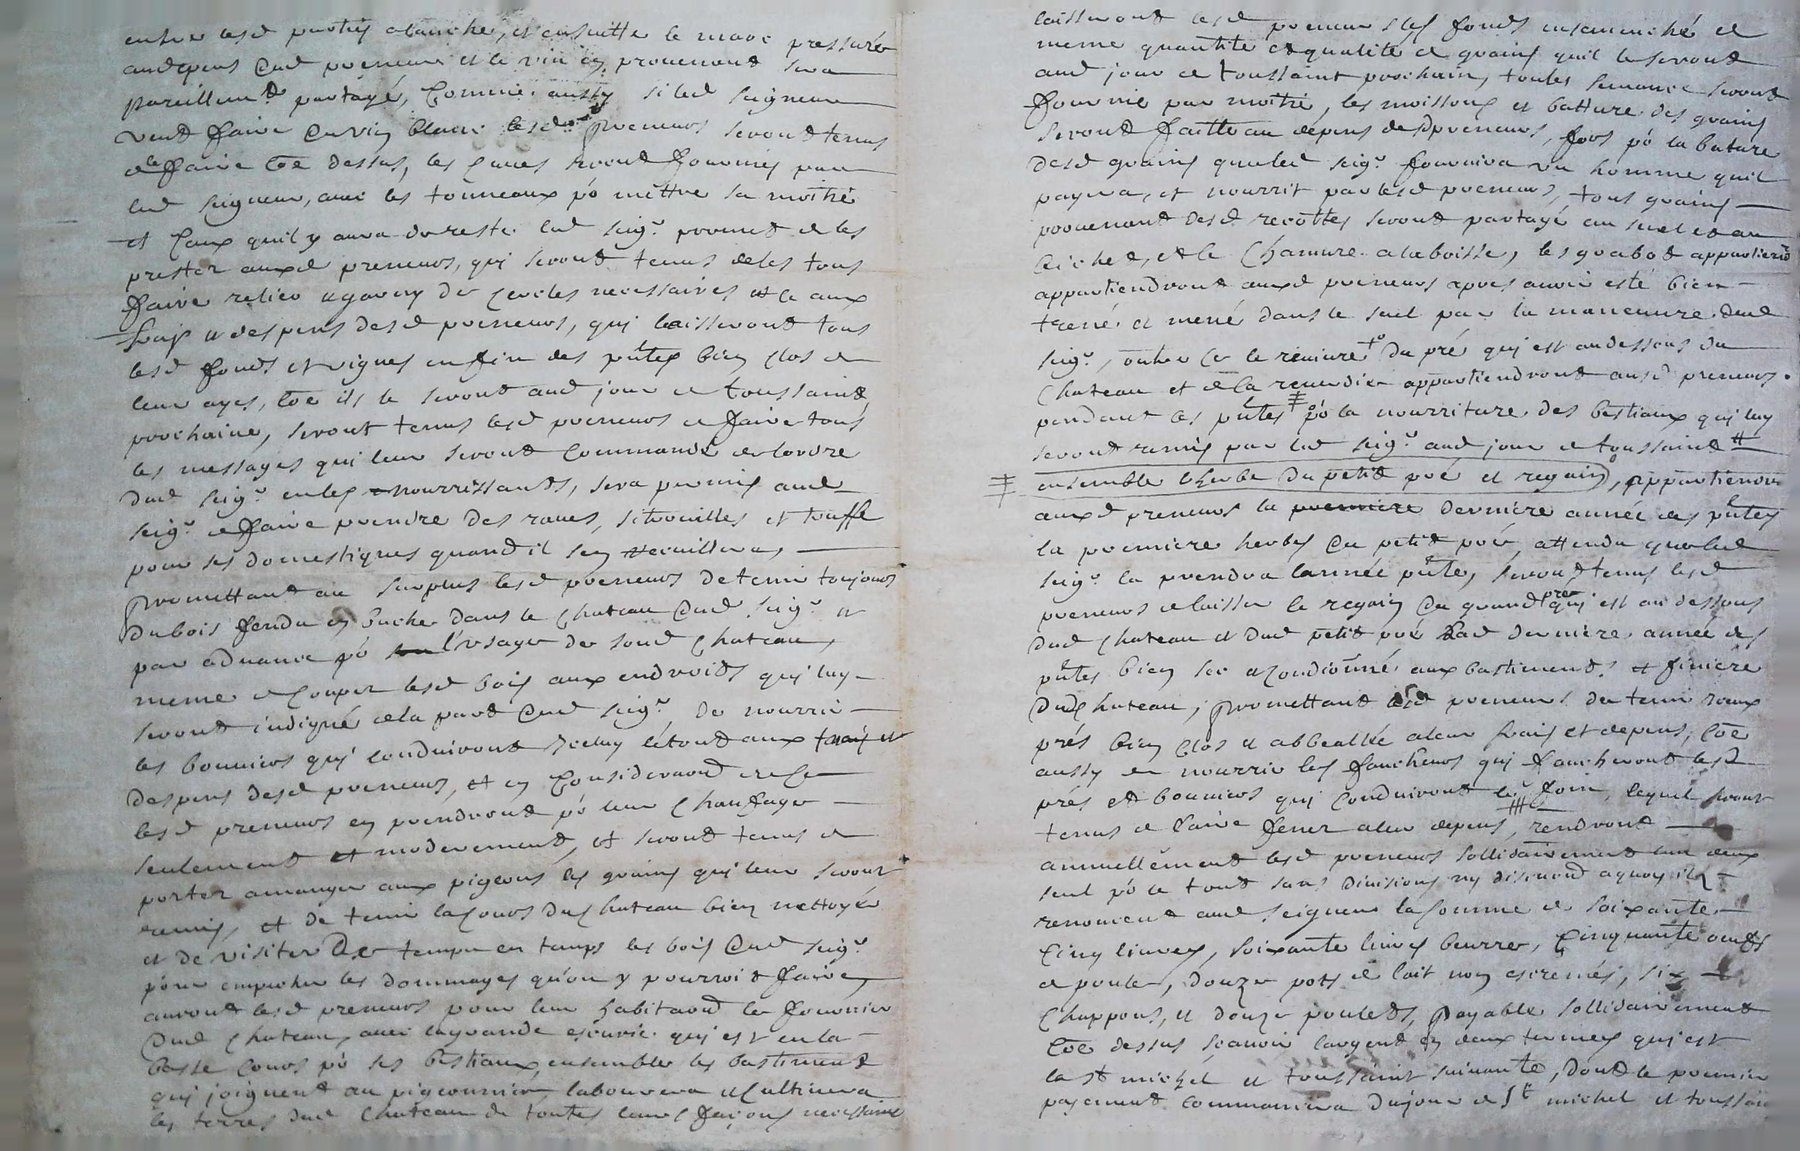 entre lesd parties a lanche, et ensuitte le marc pressuré
aud depens dud preneurs et le vin en provenant sera
pareillemt partagé, Comme aussy si led seigneur
veut faire du vin blanc lesd preneurs seront tenus
de faire cōe dessus, les cuves seront fournies par
led seigneur, avec les tonneaux pō mettre sa moitié
et Ceux quil y aura de reste led seigr promet de les
prester auxd preneurs, qui seront tenus de les tous
faire relier et garny de cercles necessaires et ce aux
frais et despens desd preneurs, qui laisseront tous
lesd fonds et vignes en fin des pñtes bien clos de
leur ayes, cōe ils le seront aud jour de toussaint
prochaine, seront tenus lesd preneurs de faire tous
les messages qui leur seront Commandé de lordre
dud seigr en les nourrissants, sera permis aud
seigr de faire prendre des raves, sitrouilles et touffle
pour ses domestiques quand il sen recuillera,
promettant au surplus lesd preneurs de tenir toujours
du bois fendu en buche dans le Chateau dud seigr et
par advance pō lusage de sond Chateau,
meme de Couper lesd bois aux endroits qui luy
seront indiqué de la part dud seigr, de nourrir
les bouviers qui conduiront iceluy le tout aux frais et
despens desd preneurs, et en Consideraõn de ce
lesd preneurs en prendront pō leur Chaufage
seulement et moderement, et seront tenus de
porter a manger aux pigeons les grains qui leur seront
remis, et de tenir la Cour du Chateau bien nettoyée
et de visiter de temps en temps les bois dud seigr
pour empecher les dommages qu'on y pourroit faire,
auront lesd preneurs pour leur habitaõn le fournier
dud Chateau, avec la grande ecurie qui est en la
basse Cour pō ses bestiaux, ensemble les bastiment
qui joignent au pigeonnier, labourera et Cultivera
les terres dud Chateau de toutes leurs façons necessaires
laisseront lesd preneurs les fonds ensemencé de
meme quantité et qualité de grains quil le seront
aud jour de toussaint prochain, toutes semance seront
fournie par moitié, les moissons et batture des grains
seront faitte au dépens desd preneurs, fors pō la bature
desd grains que led seigr fournira un homme quil
payera, et nourrit par lesd preneurs, tous grains
provenant desd recoltes seront partagé au suel et au
, et le Chanvre a la boisse, les appartiendr
appartiendront auxd preneurs apres avoir esté bien
et mené dans le suel par la maneuvre dud
seigr, outre ce le du pré qui est au dessous du
Chateau et de la appartiendront auxd preneurs
pendant les pñtes pō la nourriture des bestiaux qui luy
seront remis par led seigr aud jour de toussaint
ensemble lherbe du petit pré et regain, appartiendra
auxd preneurs la premiere derniere année des pñtes
la premiere herbe du petit pré, attendu que led
seigr la prendra lannée pñte, seront tenus lesd
preneurs de laisser le regain du grand pré qui est au dessous
dud Chateau et dud petit pré lad derniere année des
pñtes bien sec et Conditionné aux bastiments et feniere
dud Chateau, promettant lesd preneurs de tenir iceux
prés bien clos et a leur frais et depens, cōe
aussy de nourrir les faucheurs qui faucheront lesd
prés et bouviers qui Conduiront les foin, lequel seront
tenus de faire fener a leur depens, rendront
annuellement lesd preneurs sollidairement lun deux
seul pō le tout sans divisions ny discuõn a quoy ils
renoncent aud seigneur la somme de soixante
Cinq livres, soixante livres beurre, Cinquante oeufs
de poule, douze pots de lait non ecremés, six
Chappons, et douze poulets, payable sollidairement
cōe dessus scavoir largent en deux termes qui est
la St michel et toussaint suivante, dont le premier
payement commancera du jour de St michel et toussain